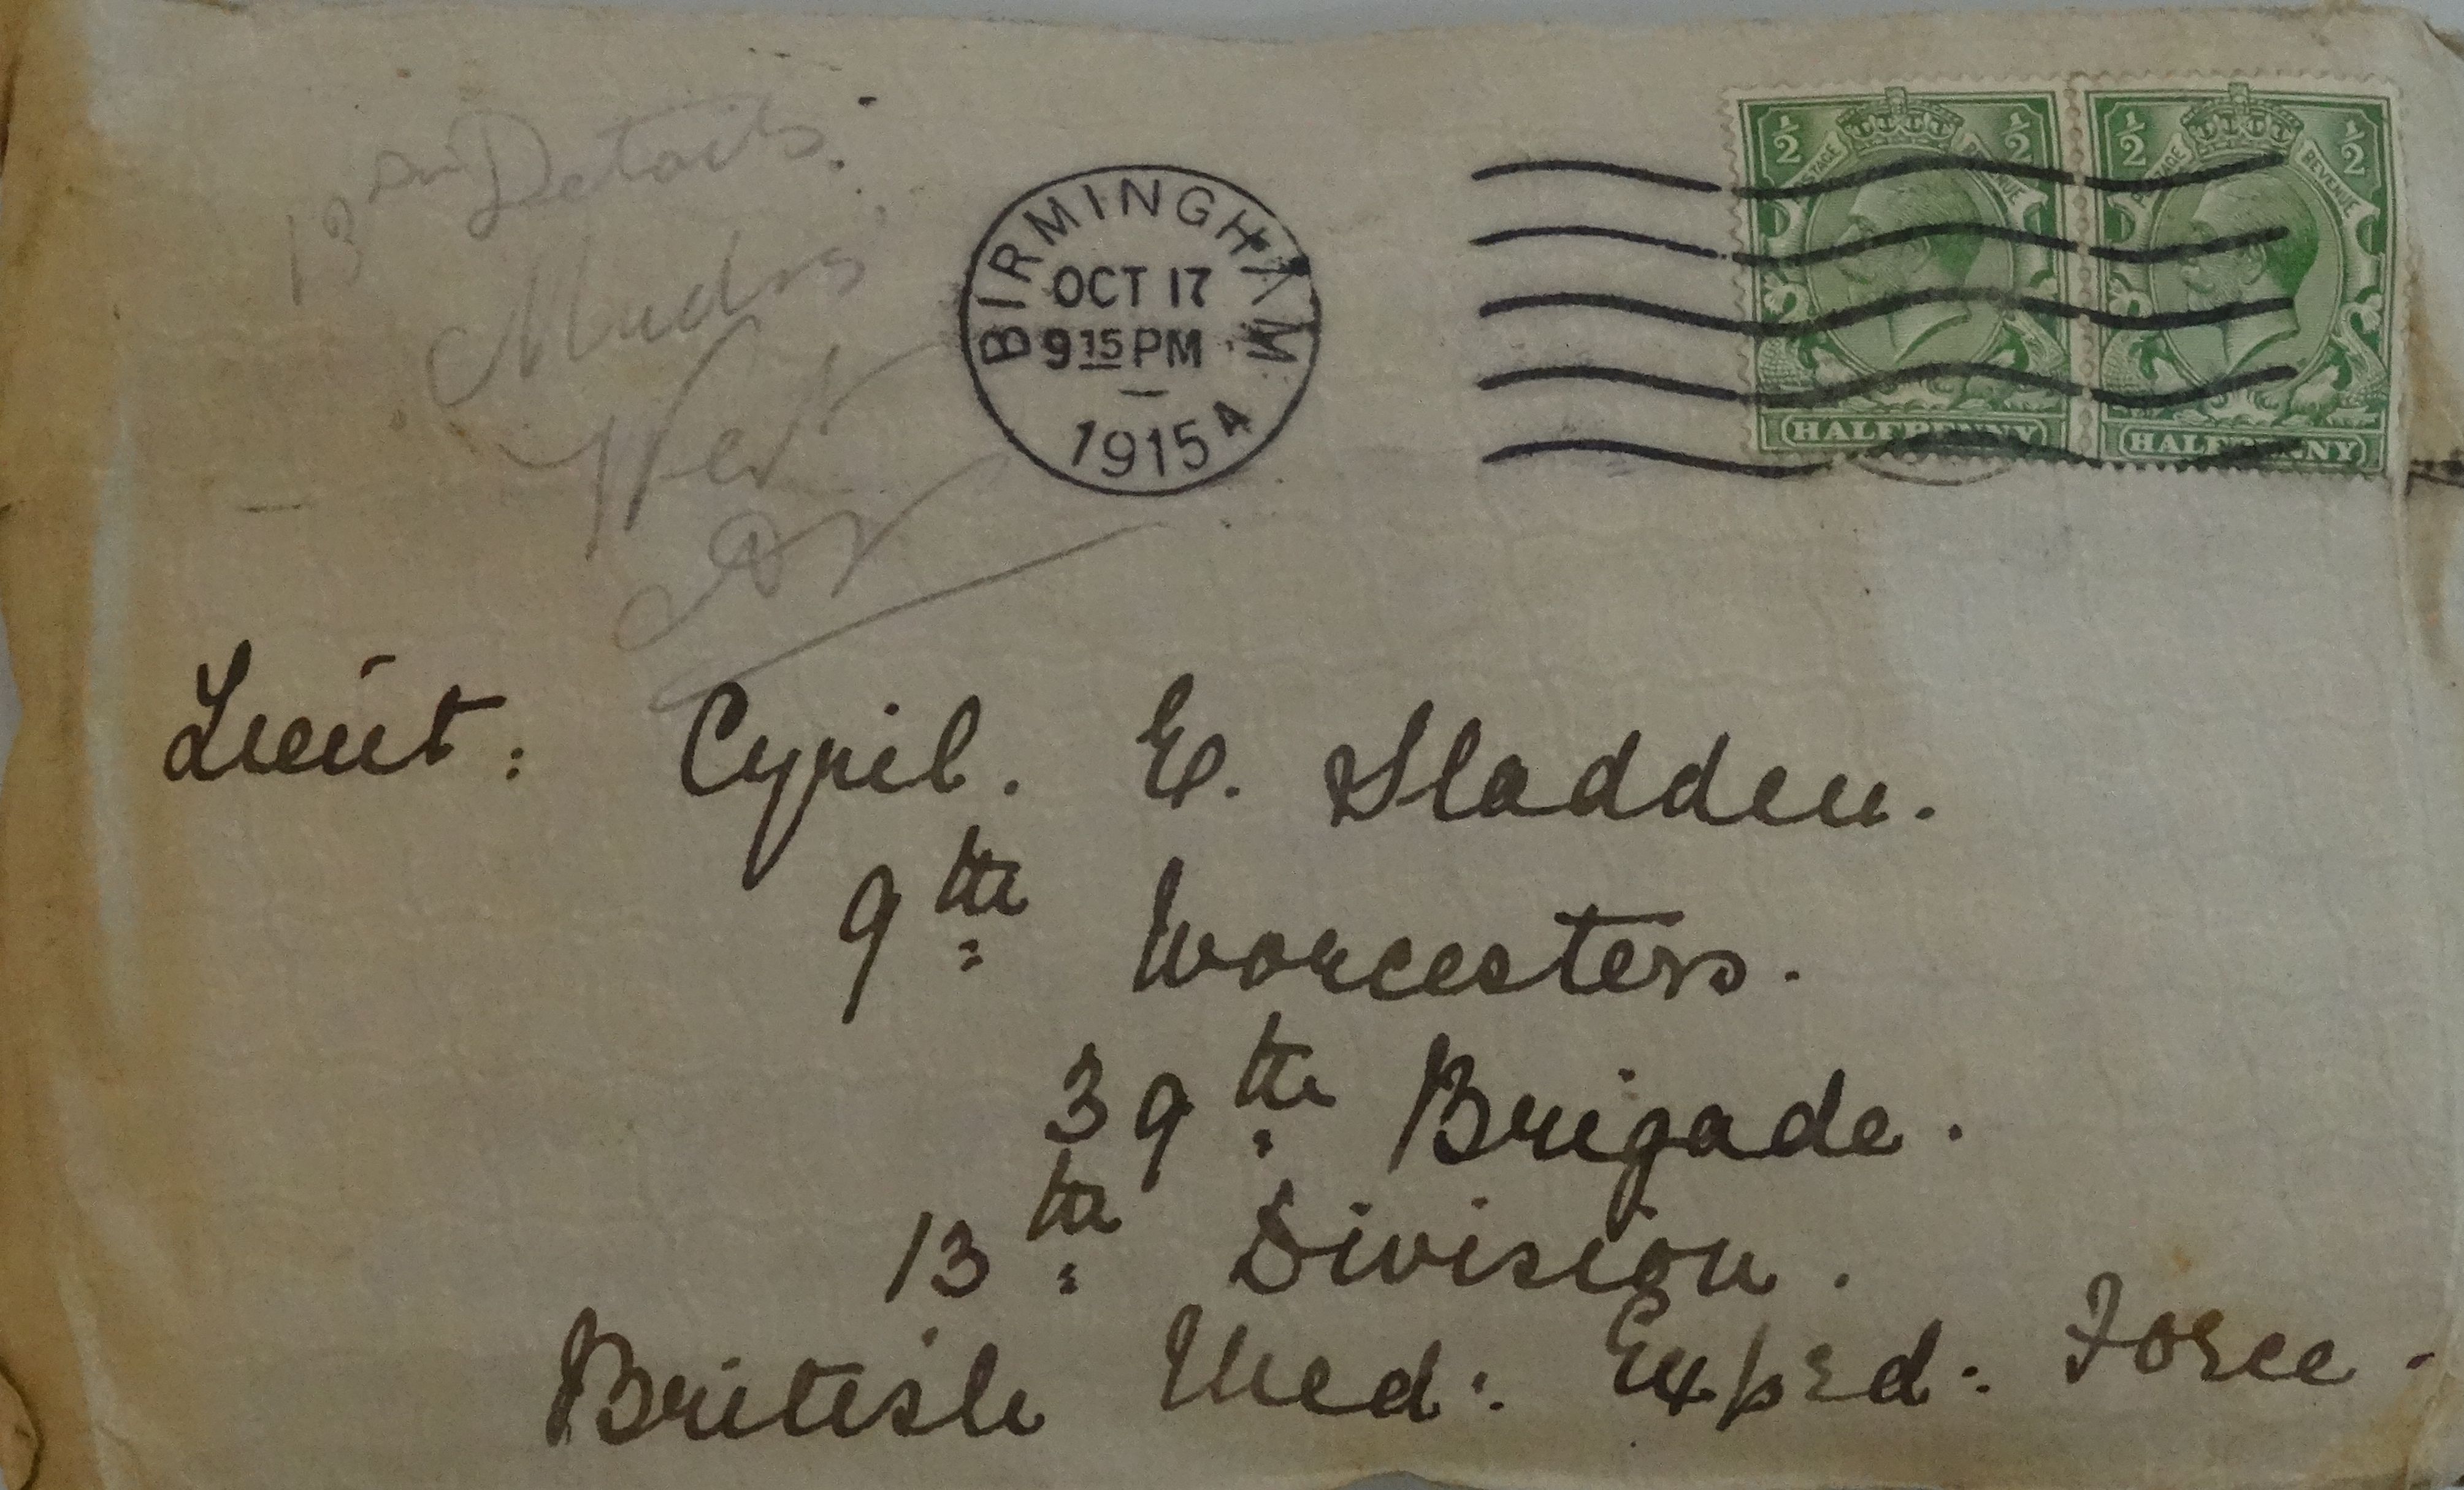 13 Dn Details.
Mudros
BIRMINGHAM
OCT 17
9 15 PM
1915 4
½ ½
POSTAGE REVENUE
HALFPENNY
½ ½
POSTAGE REVENUE
HALFPENNY
Lieut: Cyril. E. Sladden.
9th Worcesters.
39th Brigade.
13th Division.
British Med: Exped: Force.